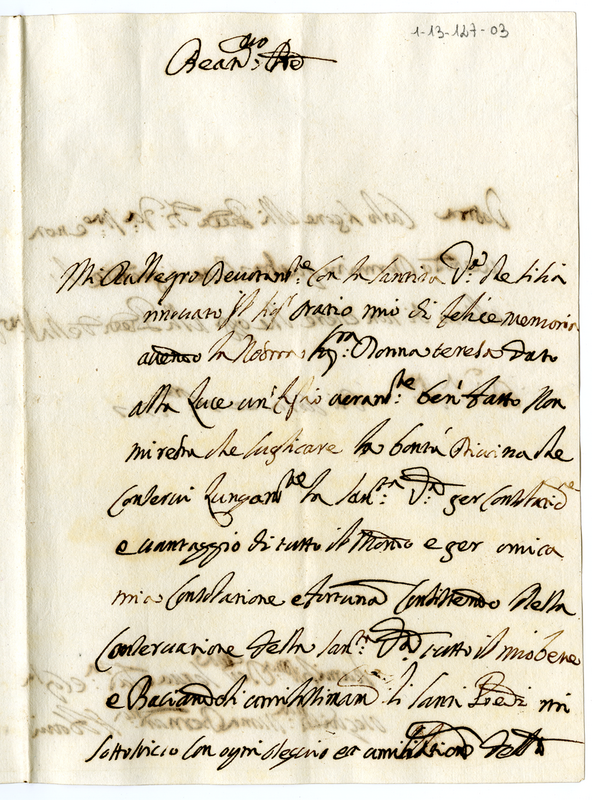 1-13-127-03
Bean.mo Pre
Mi Rallegro Devotam.te Con la Santità V.ra che si sia
rinovato il Sig.r Oratio mio di felice memoria
avendo la Nostra Sig.ra Donna teresa dato
alla Luce un figlio veram.te ben fatto Non
mi resta che suplicare la bontà Divina che
Conservi Lungam.te la San.tà V.ra per Consolatio.ne
e vantaggio di tutto il Mondo e per onica
mia Consolatione e fortuna Consistendo Nella
Conservatione Della San.tà V.ra tutto il mio bene
e Baciandoli umilissimam. li Santi Piedi mi
sottoscrivo Con ogni osequio et umiliatione Della